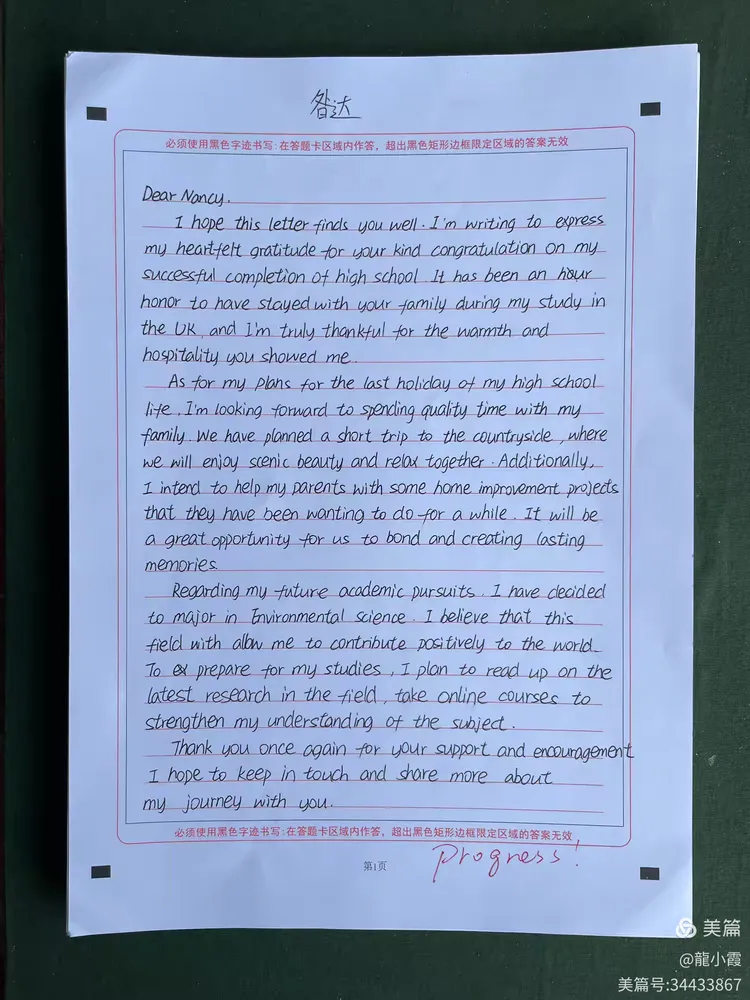 昝达
必须使用黑色字迹书写:在答题卡区域内作答，超出黑色矩形边框限定区域的答案无效
Dear Nancy.
I hope this letter finds you well. I'm writing to express
my heartfelt gratitude for your kind congratulation on my
successful completion of high school. It has been an hour
honor to have stayed with your family during my study in
the UK, and I'm truly thankful for the warmth and
hospitality you showed me.
As for my plans for the last holiday of my high school
life, I'm looking forward to spending quality time with my
family. We have planned a short trip to the countryside, where
we will enjoy scenic beauty and relax together. Additionally,
I intend to help my parents with some home improvement projects
that they have been wanting to do for a while. It will be
a great opportunity for us to bond and creating lasting
memories.
Regarding my future academic pursuits. I have decided
to major in Environmental science. I believe that this
field with allow me to contribute positively to the world.
To ex prepare for my studies, I plan to read up on the
latest research in the field, take online courses to
strengthen my understanding of the subject.
Thank you once again for your support and encouragement
I hope to keep in touch and share more about
my journey with you.
必须使用黑色字迹书写:在答题卡区域内作答，超出黑色矩形边框限定区域的答案无效
progress!
第1页
美篇
@龍小霞
美篇号:34433867